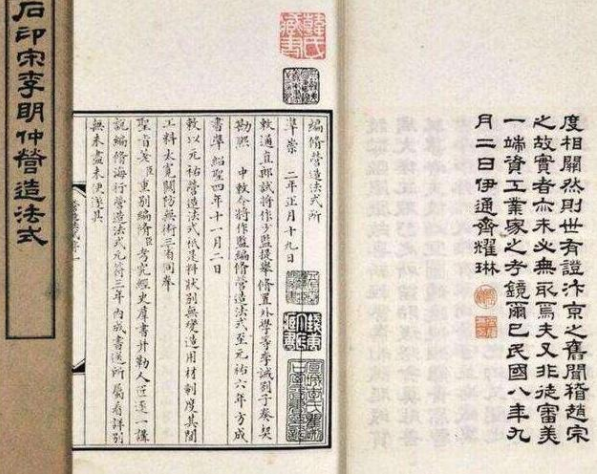 度相關然則世有證汴京之舊聞稽趙宋
之故實者亦未必無取焉夫又非徒審美
一端資工業家之考鏡爾已民國八年九
月二日伊通齊耀琳
韓氏藏書
編脩營造法式所
準崇 二年正月十九日
敕通直郎試將作少監提舉脩置外學等李誡劄子奏契
勘熙 中敕令將作監編脩營造法式至元祐六年方成
書準紹聖四年十一月二日
敕以元祐營造法式祗是料狀別無變造用材制度其間
工料太寬關防無術三省同奉
聖旨著臣重別編脩臣考究經史羣書并勒人匠逐一講
說編脩海行營造法式元符三年內成書送所屬看詳別
無未盡未便遂具
石印宋李明仲營造法式